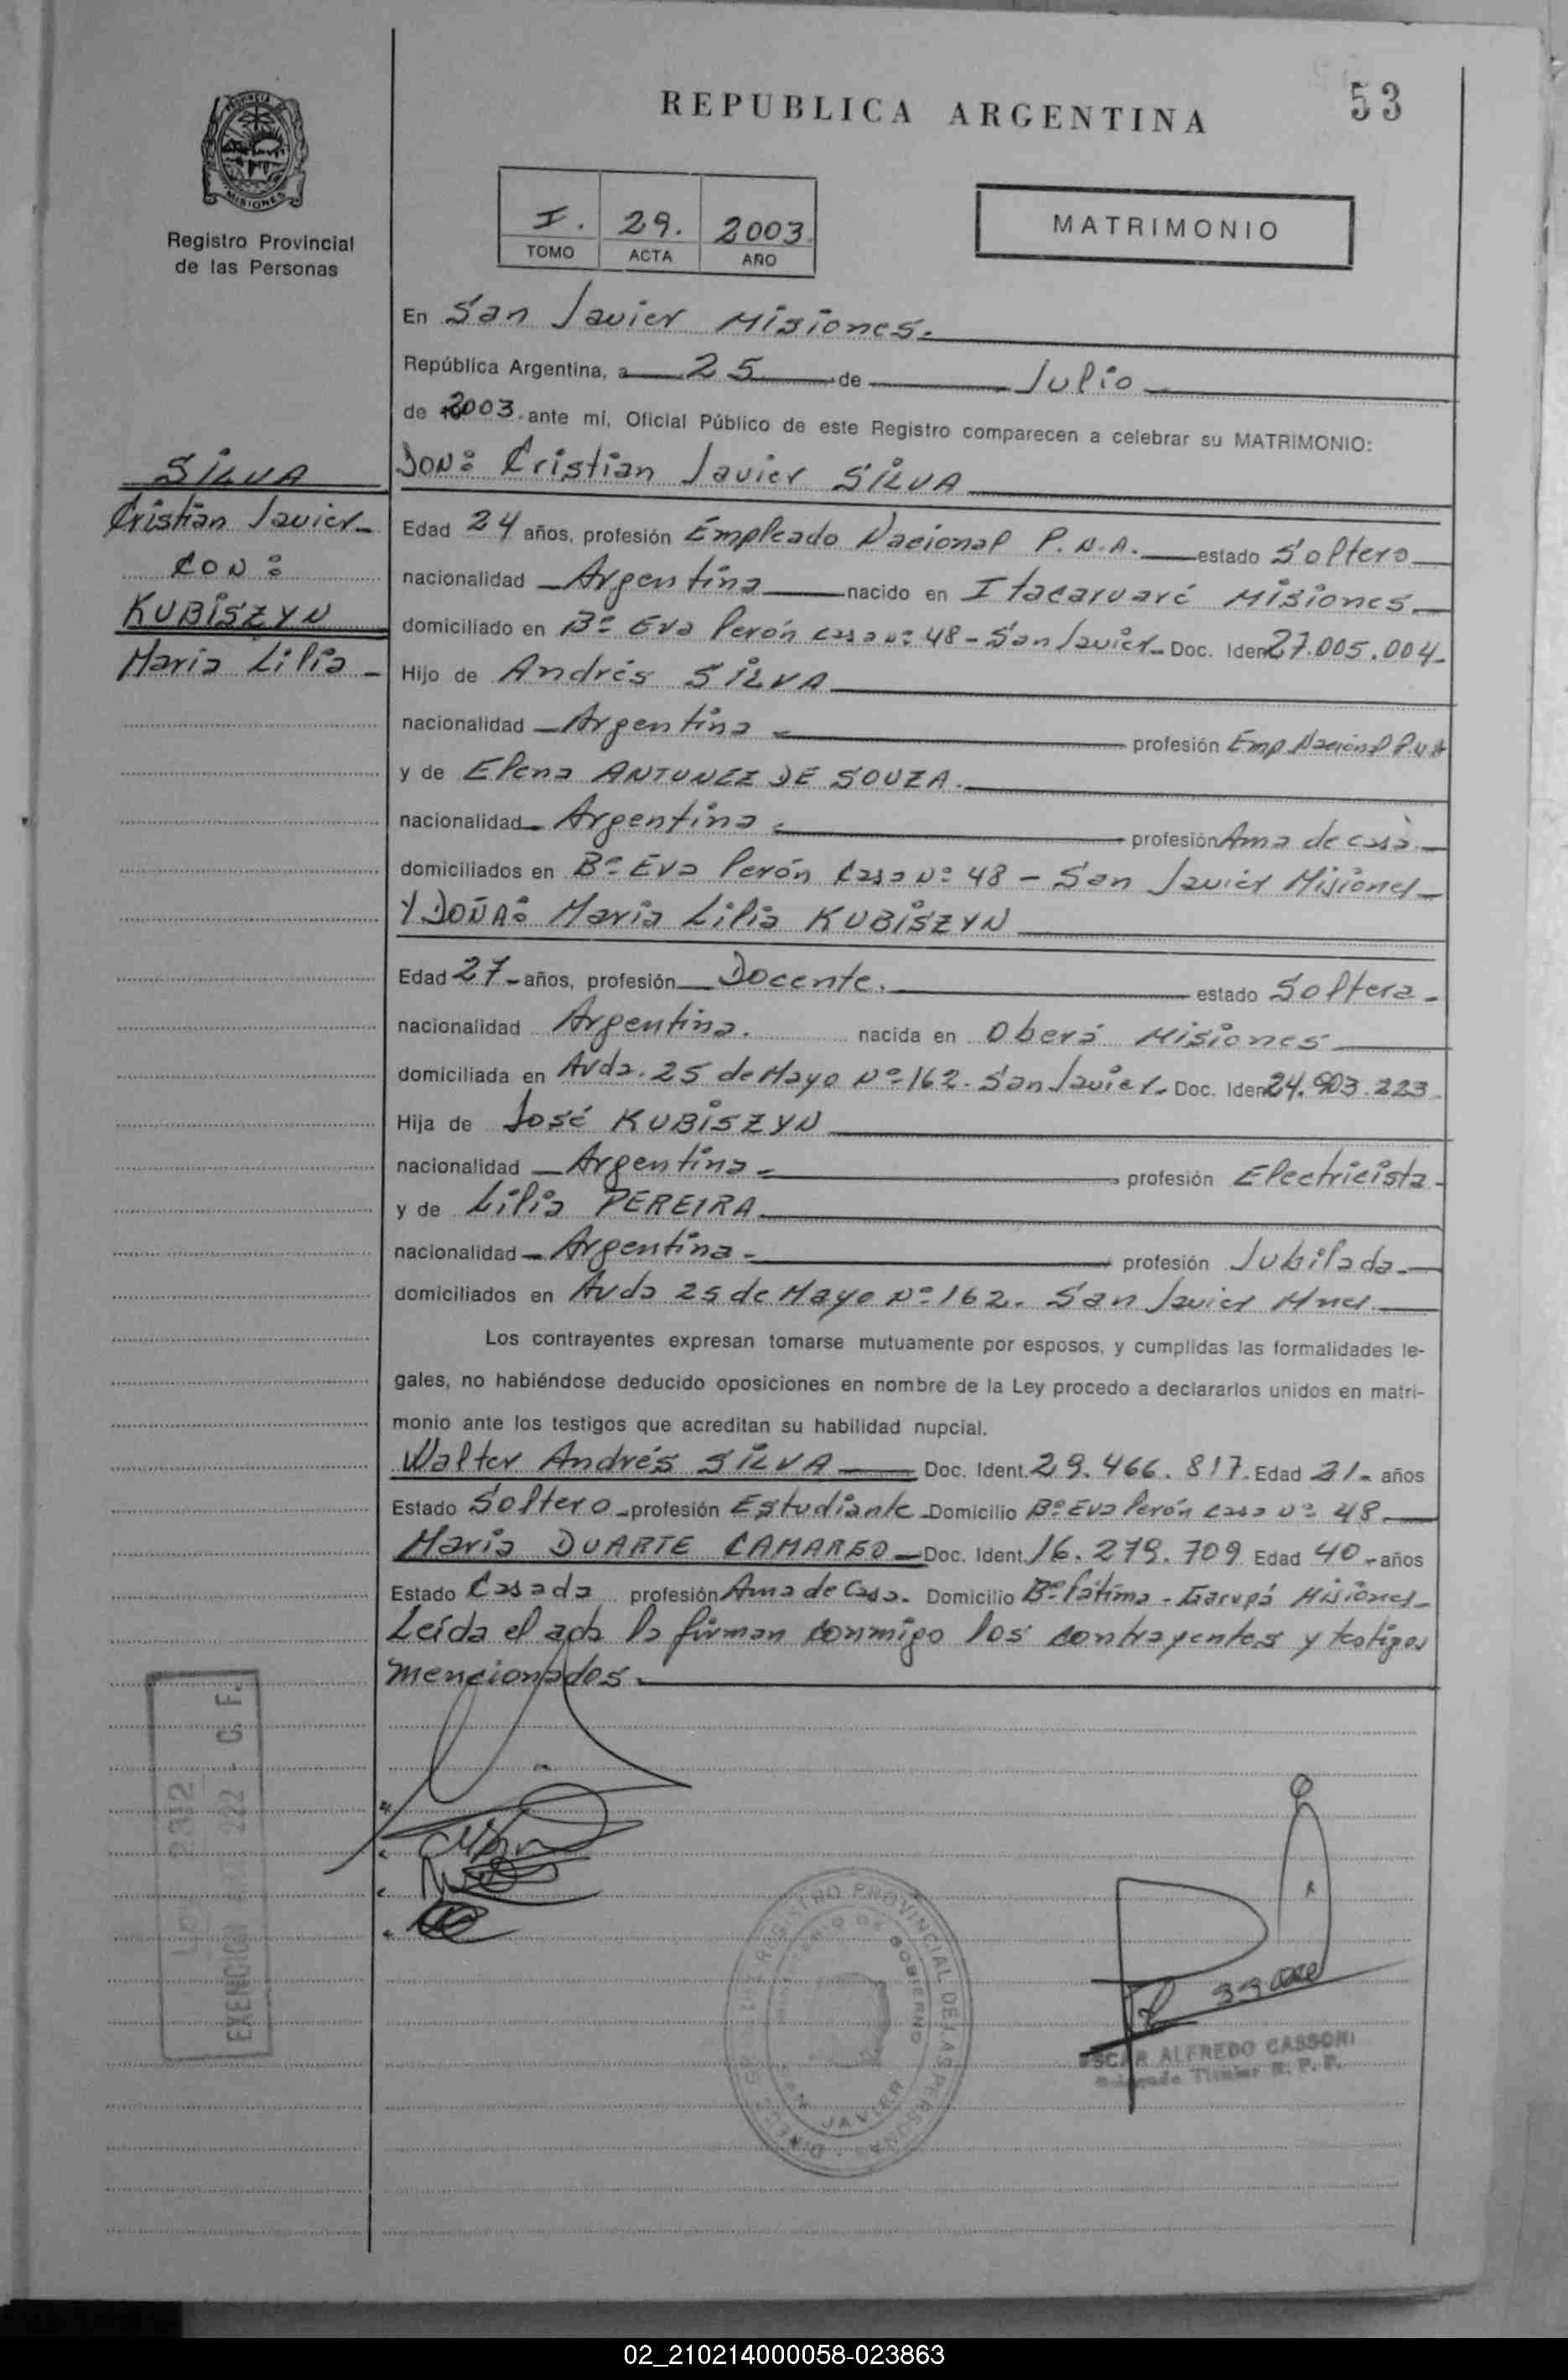 53
REPUBLICA ARGENTINA
MISIONES
Registro Provincial
de las Personas
I. 29. 2003.
TOMO ACTA AÑO
MATRIMONIO
En San Javier Misiones.
República Argentina, a 25 de Julio
de 2003. ante mí, Oficial Público de este Registro comparecen a celebrar su MATRIMONIO:
SILVA
Cristian Javier
CON:
KUBISZYN
Maria Lilia
DON: Cristian Javier SILVA
Edad 24 años, profesión Empleado Nacional P.N.A. estado Soltero
nacionalidad Argentina nacido en Itacaruaré Misiones.
domiciliado en Bº Eva Perón casa nº 48 - San Javier. Doc. Iden 27.005.004.
Hijo de Andrés SILVA
nacionalidad Argentina profesión Emp. Nacional P.N.A
y de Elena ANTUNEZ DE SOUZA.
nacionalidad Argentina profesión Ama de casa.
domiciliados en Bº Eva Perón Casa nº 48 - San Javier Misiones
Y DOÑA: Maria Lilia KUBISZYN
Edad 27 años, profesión Docente. estado Soltera
nacionalidad Argentina. nacida en Oberá Misiones
domiciliada en Avda. 25 de Mayo Nº 162. San Javier. Doc. Iden 24.903.223.
Hija de José KUBISZYN
nacionalidad Argentina profesión Electricista
y de Lilia PEREIRA
nacionalidad Argentina profesión Jubilada
domiciliados en Avda 25 de Mayo Nº 162. San Javier Mnes
Los contrayentes expresan tomarse mutuamente por esposos, y cumplidas las formalidades le-
gales, no habiéndose deducido oposiciones en nombre de la Ley procedo a declararlos unidos en matri-
monio ante los testigos que acreditan su habilidad nupcial.
Walter Andrés SILVA Doc. Ident. 29.466.817. Edad 21 años
Estado Soltero profesión Estudiante Domicilio Bº Eva Perón casa nº 48
Maria DUARTE CAMARGO Doc. Ident. 16.279.709 Edad 40 años
Estado Casada profesión Ama de Casa. Domicilio Bº Fátima - Garupá Misiones
Leída el acta la firman conmigo los contrayentes y testigos
mencionados.
EXENCION 222 - C. F.
2312
REGISTRO PROVINCIAL DE LAS PERSONAS
MINISTERIO DE GOBIERNO
SAN JAVIER
OSCAR ALFREDO CASSONI
Delegado Titular R. P. P.
02_210214000058-023863